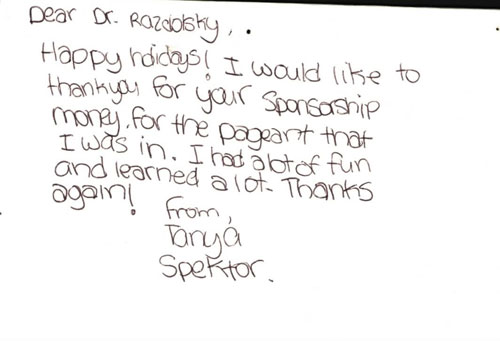 Dear Dr. Razdolsky, .
Happy holidays! I would like to
thankyou for your Sponsorship
money, for the pageant that
I was in. I had a lot of fun
and learned a lot. Thanks
again!
From,
Tanya
Spektor.